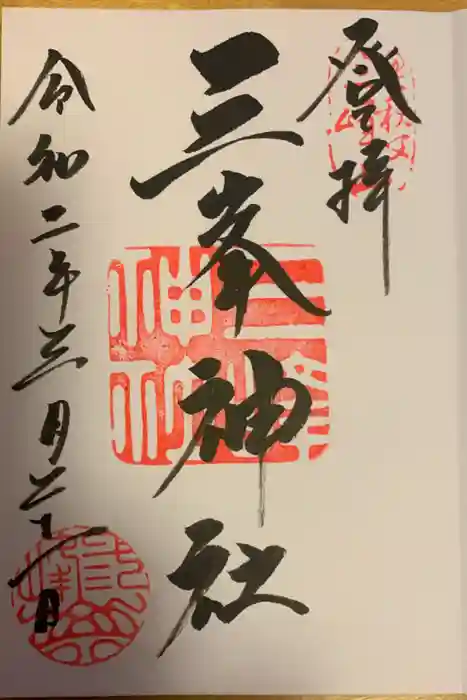 登拝
三峯神社
令和二年三月二十一日
三峯神社